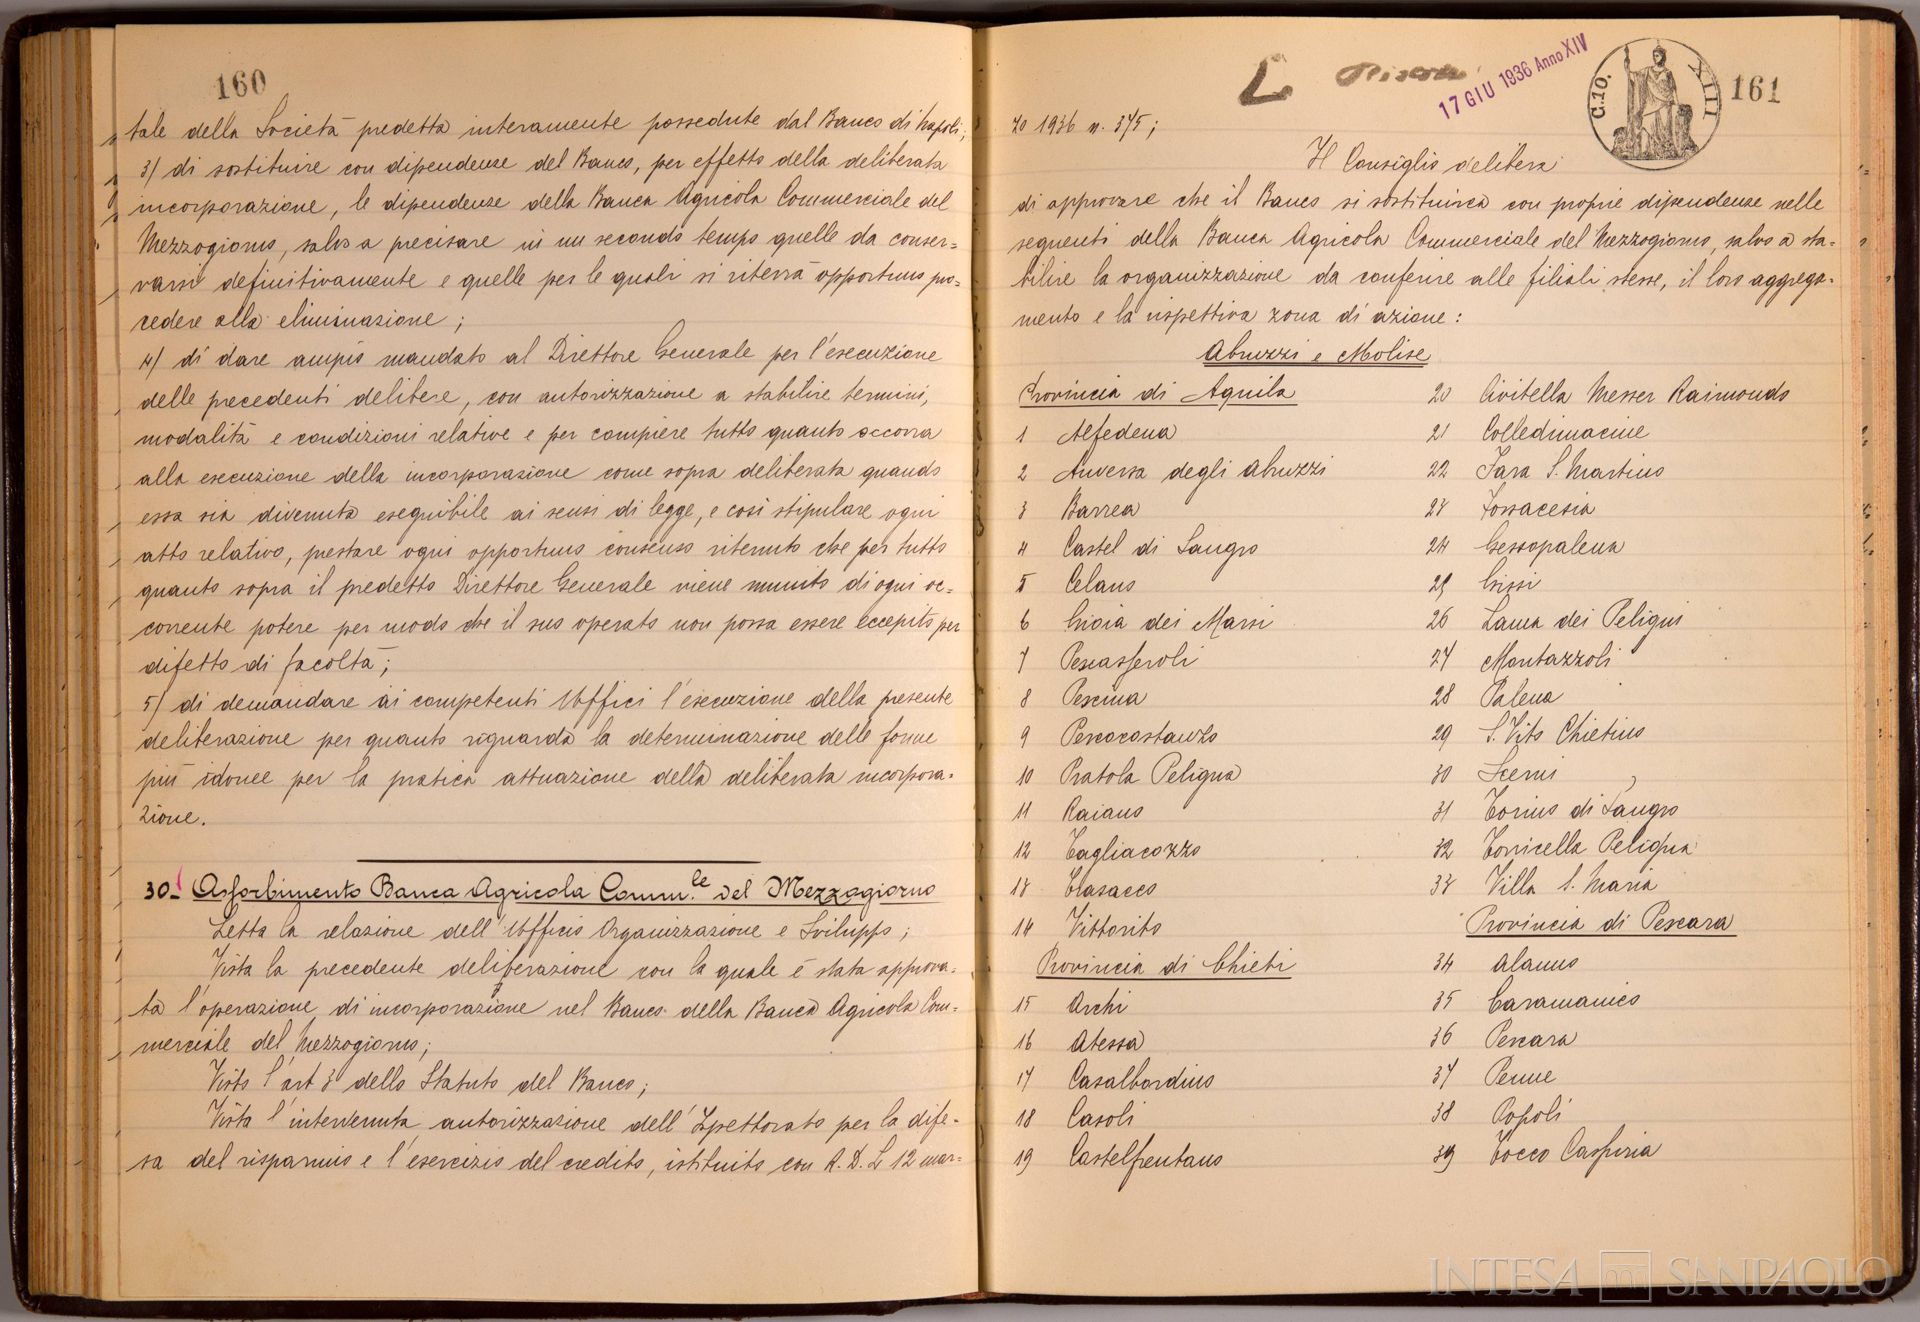 160
tale della Società predetta interamente possedute dal Banco di Napoli;
3) di sostituire con dipendenze del Banco, per effetto della deliberata
incorporazione, le dipendenze della Banca Agricola Commerciale del
Mezzogiorno, salvo a precisare in un secondo tempo quelle da conser=
varsi definitivamente e quelle per le quali si riterrà opportuno pro=
cedere alla eliminazione;
4) di dare ampio mandato al Direttore Generale per l'esecuzione
delle precedenti delibere, con autorizzazione a stabilire termini,
modalità e condizioni relative e per compiere tutto quanto occorra
alla esecuzione della incorporazione come sopra deliberata quando
essa sia divenuta eseguibile ai sensi di legge, e così stipulare ogni
atto relativo, prestare ogni opportuno consenso ritenuto che per tutto
quanto sopra il predetto Direttore Generale viene munito di ogni oc=
corrente potere per modo che il suo operato non possa essere eccepito per
difetto di facoltà;
5) di demandare ai competenti Uffici l'esecuzione della presente
deliberazione per quanto riguarda la determinazione delle forme
più idonee per la pratica attuazione della deliberata incorpora=
zione.
30- Assorbimento Banca Agricola Comm.le del Mezzogiorno
Letta la relazione dell'Ufficio Organizzazione e Sviluppo;
Vista la precedente deliberazione con la quale è stata approva=
ta l'operazione di incorporazione nel Banco della Banca Agricola Com=
merciale del Mezzogiorno;
Visto l'art 3 dello Statuto del Banco;
Vista l'intervenuta autorizzazione dell'Ispettorato per la dife=
sa del risparmio e l'esercizio del credito, istituito con R.D.L 12 mar=
17 GIU 1936 Anno XIV
C.10.
XIII
161
zo 1936 n. 375;
Il Consiglio delibera
di approvare che il Banco si sostituisca con proprie dipendenze nelle
seguenti della Banca Agricola Commerciale del Mezzogiorno, salvo a sta=
bilire la organizzazione da conferire alle filiali stesse, il loro aggrega=
mento e la rispettiva zona di azione:
Abruzzi e Molise
Provincia di Aquila
1 Alfedena
2 Anversa degli Abruzzi
3 Barrea
4 Castel di Sangro
5 Celano
6 Gioia dei Marsi
7 Pescasseroli
8 Pescina
9 Pescocostanzo
10 Pratola Peligna
11 Raiano
12 Tagliacozzo
13 Trasacco
14 Vittorito
Provincia di Chieti
15 Archi
16 Atessa
17 Casalbordino
18 Casoli
19 Castelfrentano
20 Civitella Messer Raimondo
21 Colledimacine
22 Fara S. Martino
23 Fossacesia
24 Gessopalena
25 Gissi
26 Lama dei Peligni
27 Montazzoli
28 Palena
29 S. Vito Chietino
30 Scerni
31 Torino di Sangro
32 Torricella Peligna
33 Villa S. Maria
Provincia di Pescara
34 Alanno
35 Caramanico
36 Pescara
37 Penne
38 Popoli
39 Tocco Casauria
INTESA SANPAOLO